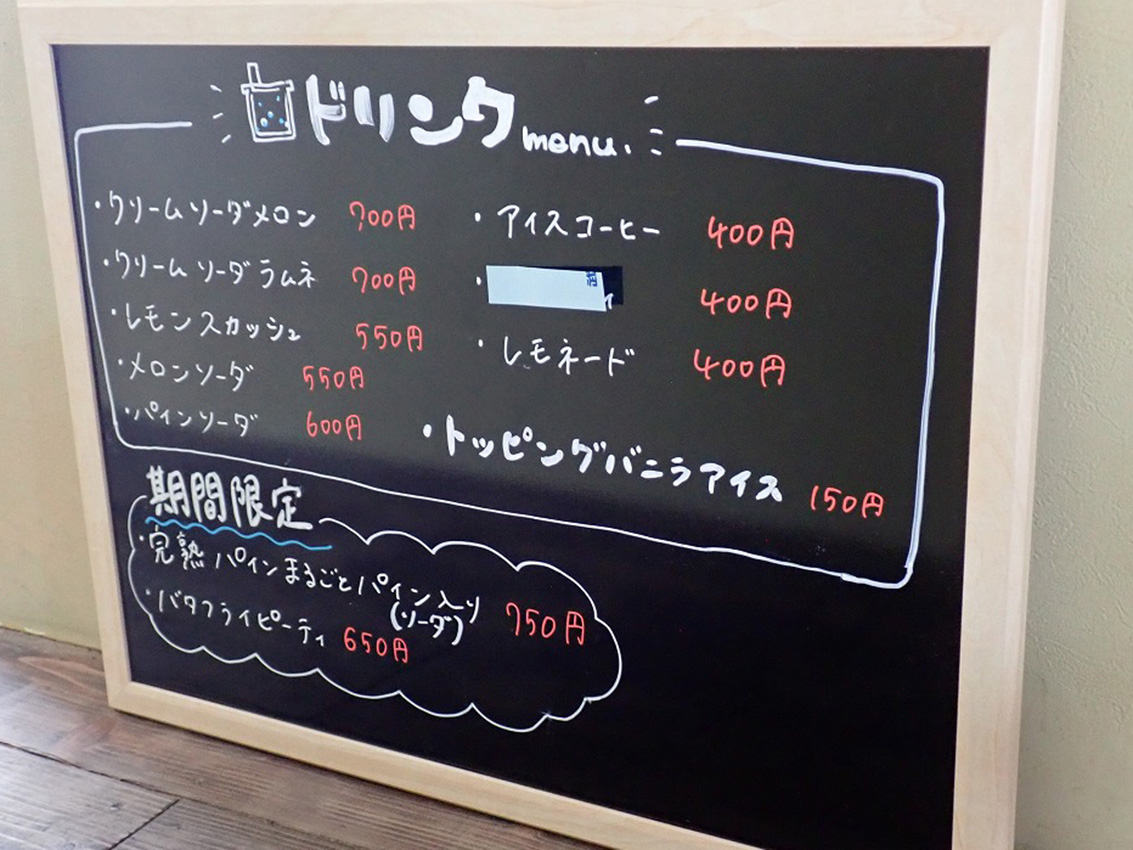 ドリンク menu.
・クリームソーダメロン 700円
・クリームソーダラムネ 700円
・レモンスカッシュ 550円
・メロンソーダ 550円
・パインソーダ 600円
・アイスコーヒー 400円
・ ィ 400円
・レモネード 400円
・トッピングバニラアイス 150円
期間限定
・完熟パインまるごとパイン入り
(ソーダ) 750円
・バタフライピーティ 650円